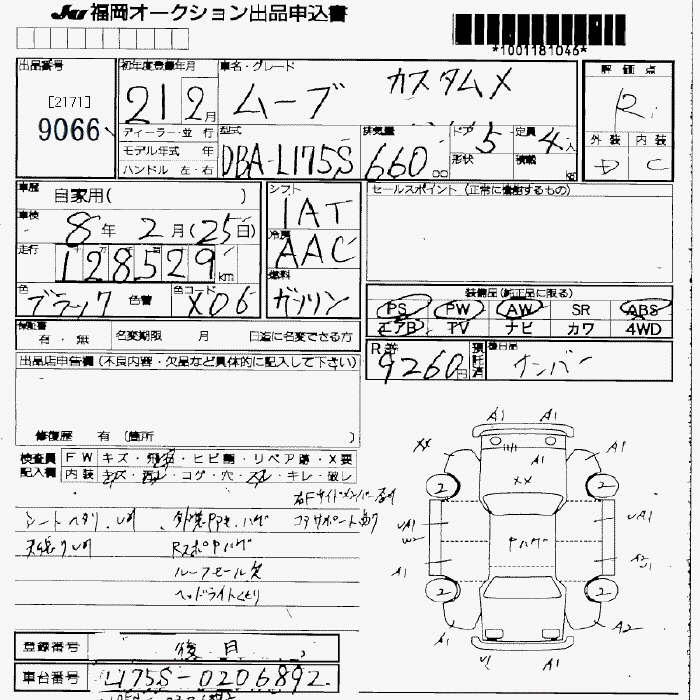 JU 福岡オークション出品申込書
*1001181046*
出品番号 [2171] 9066
初年度登録年月 21 2月
車名・グレード ムーブ カスタムX
評価点 R
外装 D 内装 C
ディーラー・並行
モデル年式 年
ハンドル 左・右
型式 DBA-L175S
排気量 660 cc
ドア 5 形状
定員 4人 積載 kg
車歴 自家用( )
車検 8年 2月(25日)
走行 128529 km
色 ブラック 色替 色コード X06
シフト IAT
冷房 AAC
燃料 ガソリン
セールスポイント(正常に機能するもの)
装備品(純正品に限る)
PS PW AW SR ABS
エアB TV ナビ カワ 4WD
保証書 有・無 名変期限 月 日迄に名変できる方
R券 9260円 預託済 後日品 ナンバー
出品店申告欄(不良内容・欠品など具体的に記入して下さい)
修復歴 有 (箇所 )
検査員記入欄
FW キズ・飛石・ヒビ割・リペア跡・X要
内装 キズ・汚レ・コゲ・穴・スレ・キレ・破レ
右Fサイドメンバー
シートヘタリ コアサポート
ルーフモール欠
ヘッドライトくもり
A1 A1
XX A1 A1
XX
2 2
UA1 Pハゲ UA1
W2
A1 A2
2 2
A1 A2
登録番号 後日
車台番号 L175S-0206892